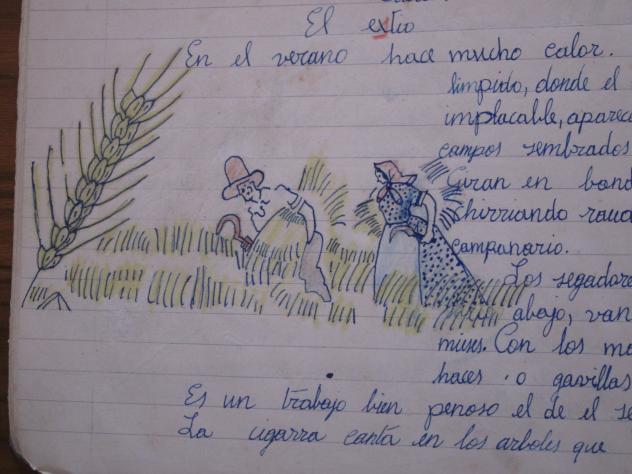 El extio
En el verano hace mucho calor.
limpido, donde el
implacable, aparec
campos sembrados
Giran en band
chirriando
campanario.
Los segadore
abajo, van
mieses. Con los
haces o gavillas
Es un trabajo bien penoso el de el se
La cigarra canta en los arboles que